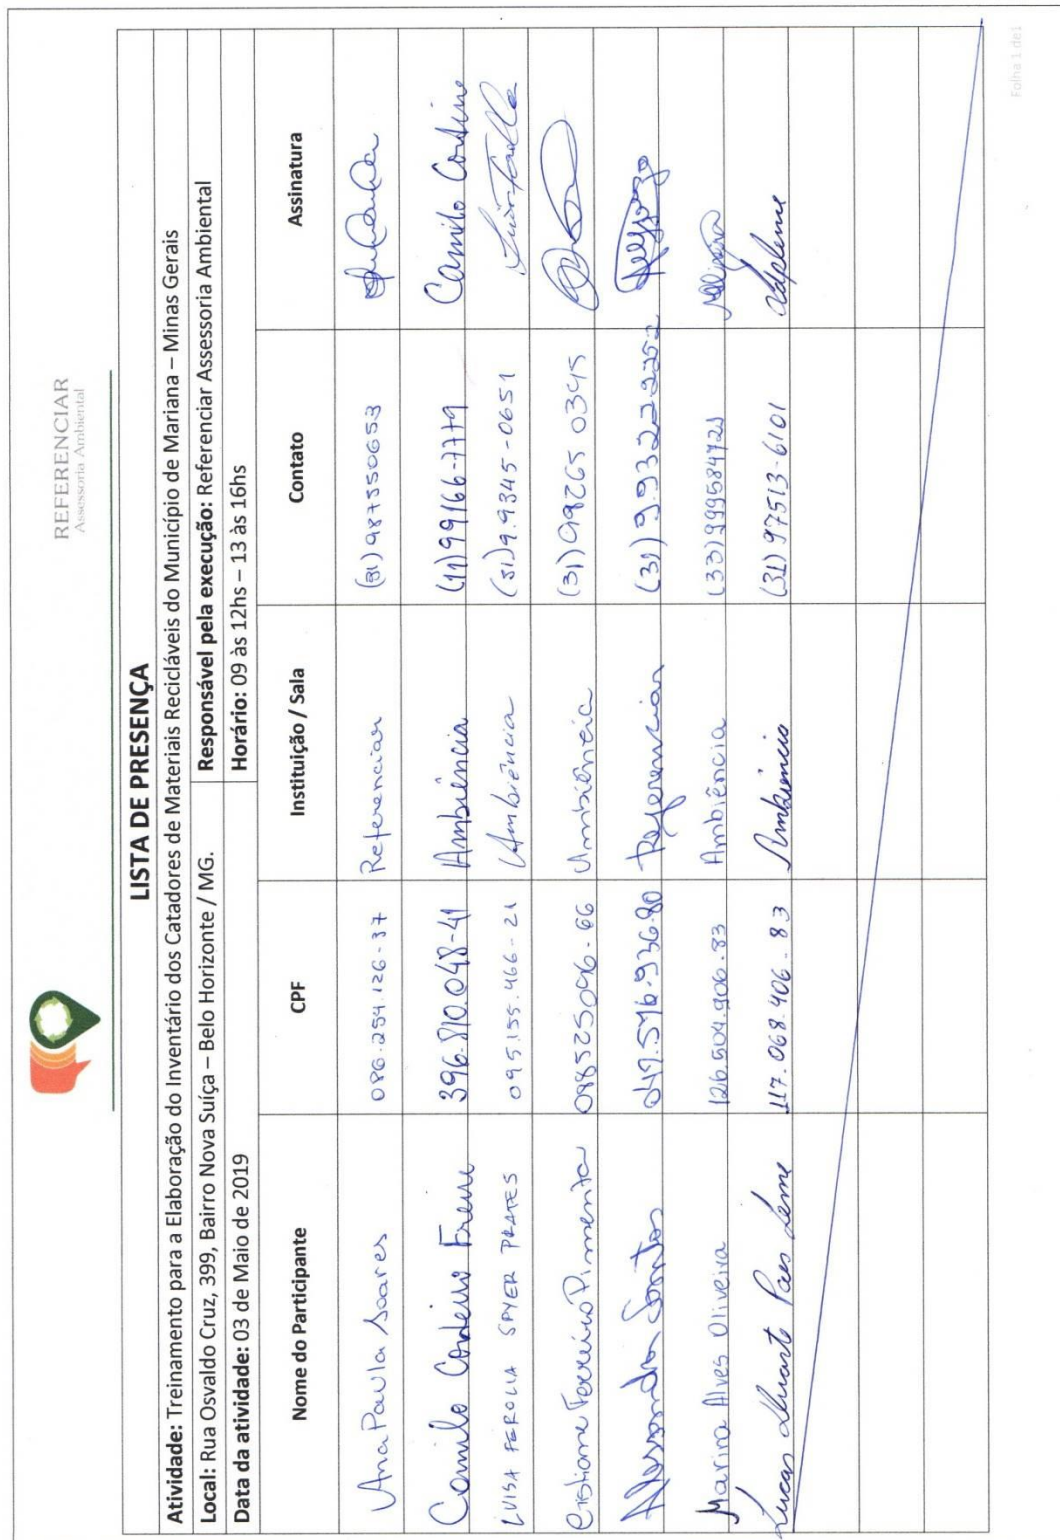 REFERENCIAR
Assessoria Ambiental
LISTA DE PRESENÇA
Atividade: Treinamento para a Elaboração do Inventário dos Catadores de Materiais Recicláveis do Município de Mariana – Minas Gerais
Local: Rua Osvaldo Cruz, 399, Bairro Nova Suíça – Belo Horizonte / MG. Responsável pela execução: Referenciar Assessoria Ambiental
Data da atividade: 03 de Maio de 2019 Horário: 09 às 12hs – 13 às 16hs
Nome do Participante CPF Instituição / Sala Contato Assinatura
Ana Paula Soares 086.254.126-37 Referenciar (31) 987550653
Camilo Cordeiro Freire 396.810.048-41 Ambiência (11) 99166-7779 Camilo Cordeiro
LUISA FEROLLA SPYER PRATES 095.155.466-21 Ambiência (31) 9.9345-0651
Cristiane Ferreira Pimenta 098525096-66 Ambiência (31) 98265 0345
Alessandra Santos 047.576.936.80 Referenciar (31) 9.9322-2252
Marina Alves Oliveira 126.504.906.83 Ambiência (33) 999584721
Lucas Duarte Paes Leme 117.068.406-83 Ambiência (31) 97513-6101
Folha 1 de1